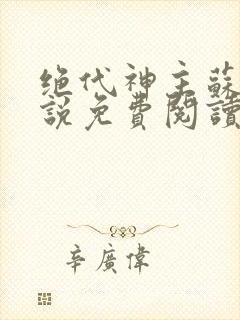 绝代神主蘇
說免費閱讀
辛廣偉